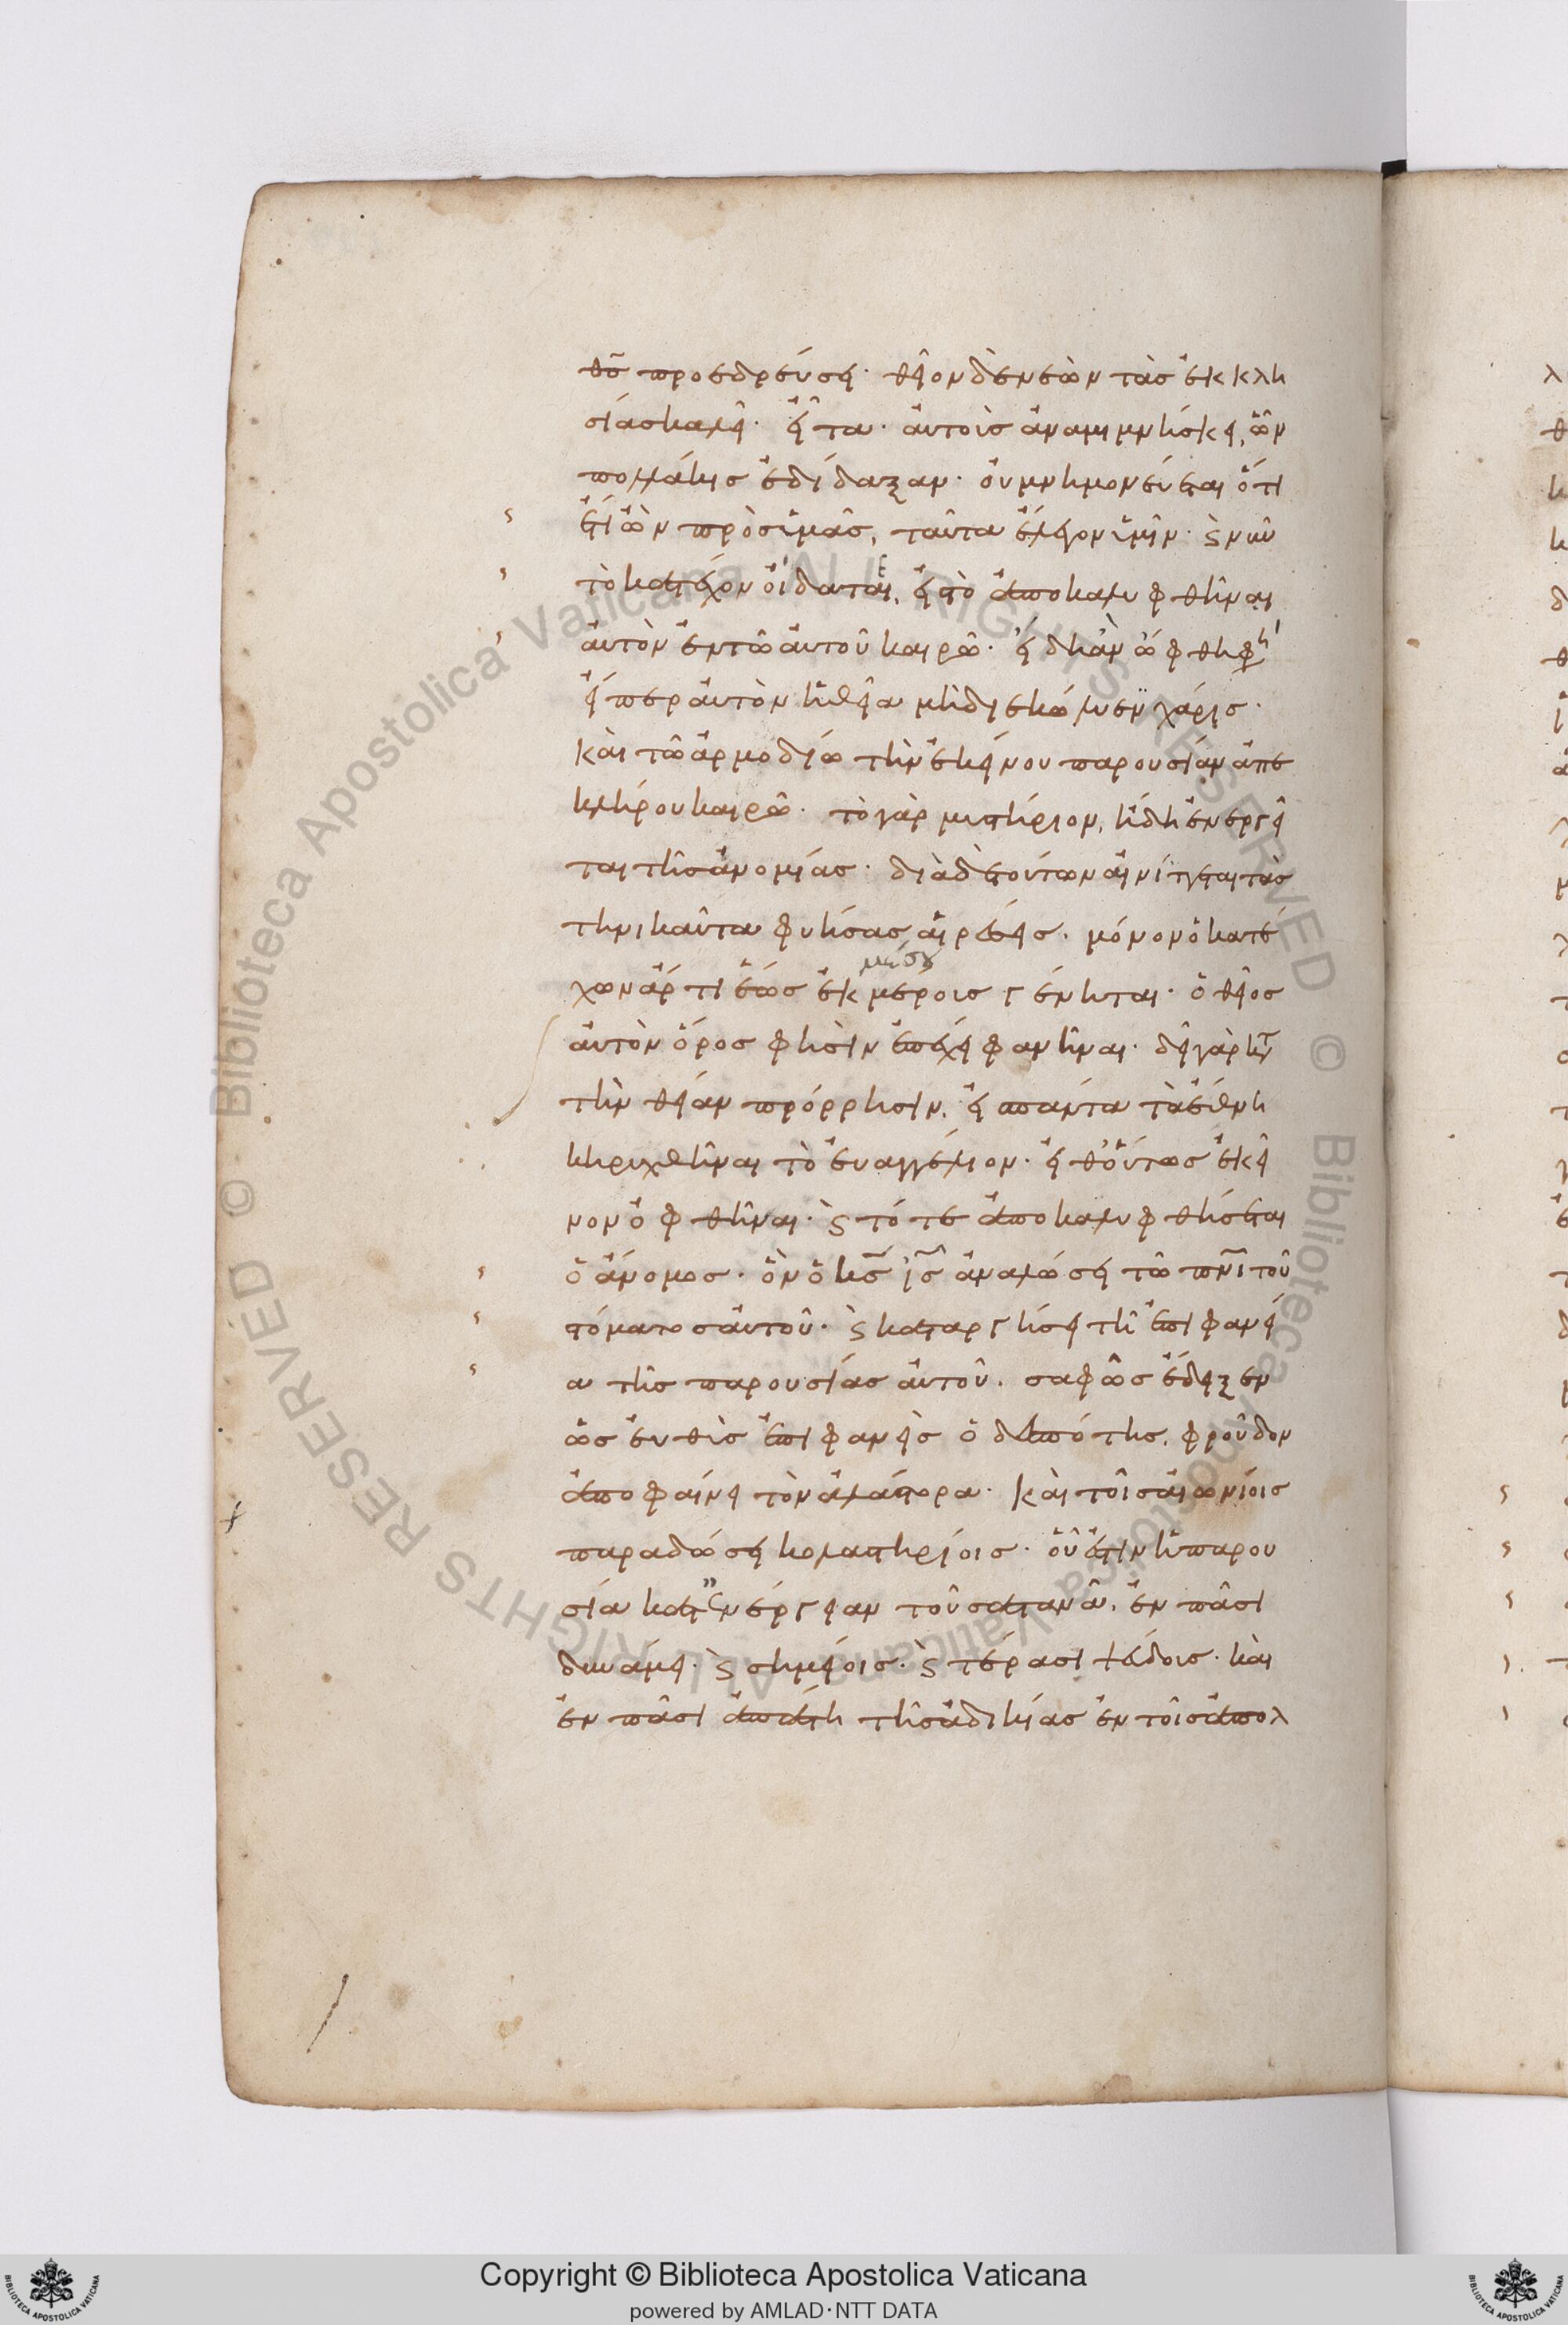 θσ̅ προσεδρεύσει· θεῖον δὲ νεὼν τὰσ ἐκκλη
σίασ καλεῖ· εἶτα· αὐτοὶσ ἀναμιμνήσκει, ὧν
πολλάκισ ἐδίδαξαν· οὐ μνημονεύεται ὅτι
ἔτι ὢν πρὸσ ὑμᾶσ, ταῦτα ἔλεγον ὑμῖν· ϛ̀ νῦν
τὸ κατέχον οἴδαται, εἰσ τὸ ἀποκαλυφθῆναι
αὐτὸν ἐν τῶ αὐτοῦ καιρῶ·
εἴπερ αὐτὸν ἡ θεία μὴ διεκώλυεν χάρισ·
καὶ τῶ ἁρμοδίω τὴν ἐκείνου παρουσίαν ἀπε
κλήρου καιρῶ· τὸ γὰρ μυστήριον, ἤδη ἐνεργεῖ
ται τῆσ ἀνομίασ· διὰ δὲ τούτων αἰνίττεται τὰσ
τηνικαῦτα φυήσασ αἱρέσεισ. μόνον ὁ κατέ
χων ἄρτι ἕωσ ἐκ μέροισ γένηται· ὁ θεῖοσ
μέσου
αὐτὸν ὅροσ φησὶν ἐπέχει φανῆναι· δεῖ γὰρ κατὰ
τὴν θείαν πρόρρησιν, εἰσ πάντα τὰ ἔθνη
κηρυχθῆναι τὸ εὐαγγέλιον· εἶθ οὕτωσ ἐκεῖ
νον ὀφθῆναι· ϛ̀ τότε ἀποκαλυφθήσεται
ὁ ἄνομοσ· ὃν ὁ κσ̅ ἰσ̅ ἀναλώσει τῶ πνι̅ τοῦ
στόματοσ αὐτοῦ· ϛ̀ καταργήσει τῆ ἐπιφανεί
α τῆσ παρουσίασ αὐτοῦ. σαφῶσ ἔδειξεν
ὡσ εὐθὶσ ἐπιφανεὶσ ὁ δεσπότησ, φροῦδον
ἀποφαίνει τὸν ἀλάστορα· καὶ τοῖσ αἰωνίοισ
παραδώσει κολαστηρίοισ· οὗ ἐστὶν ἡ παρου
σία κατ ἐνέργειαν τοῦ σατανᾶ, ἐν πᾶσι
δυνάμει· ϛ̀ σημείοισ· ϛ̀ τέρασι ψεύδοισ· καὶ
ἐν πᾶσι ἀπάτη τῆσ ἀδικίασ ἐν τοῖσ ἀπολ
Copyright © Biblioteca Apostolica Vaticana
powered by AMLAD·NTT DATA